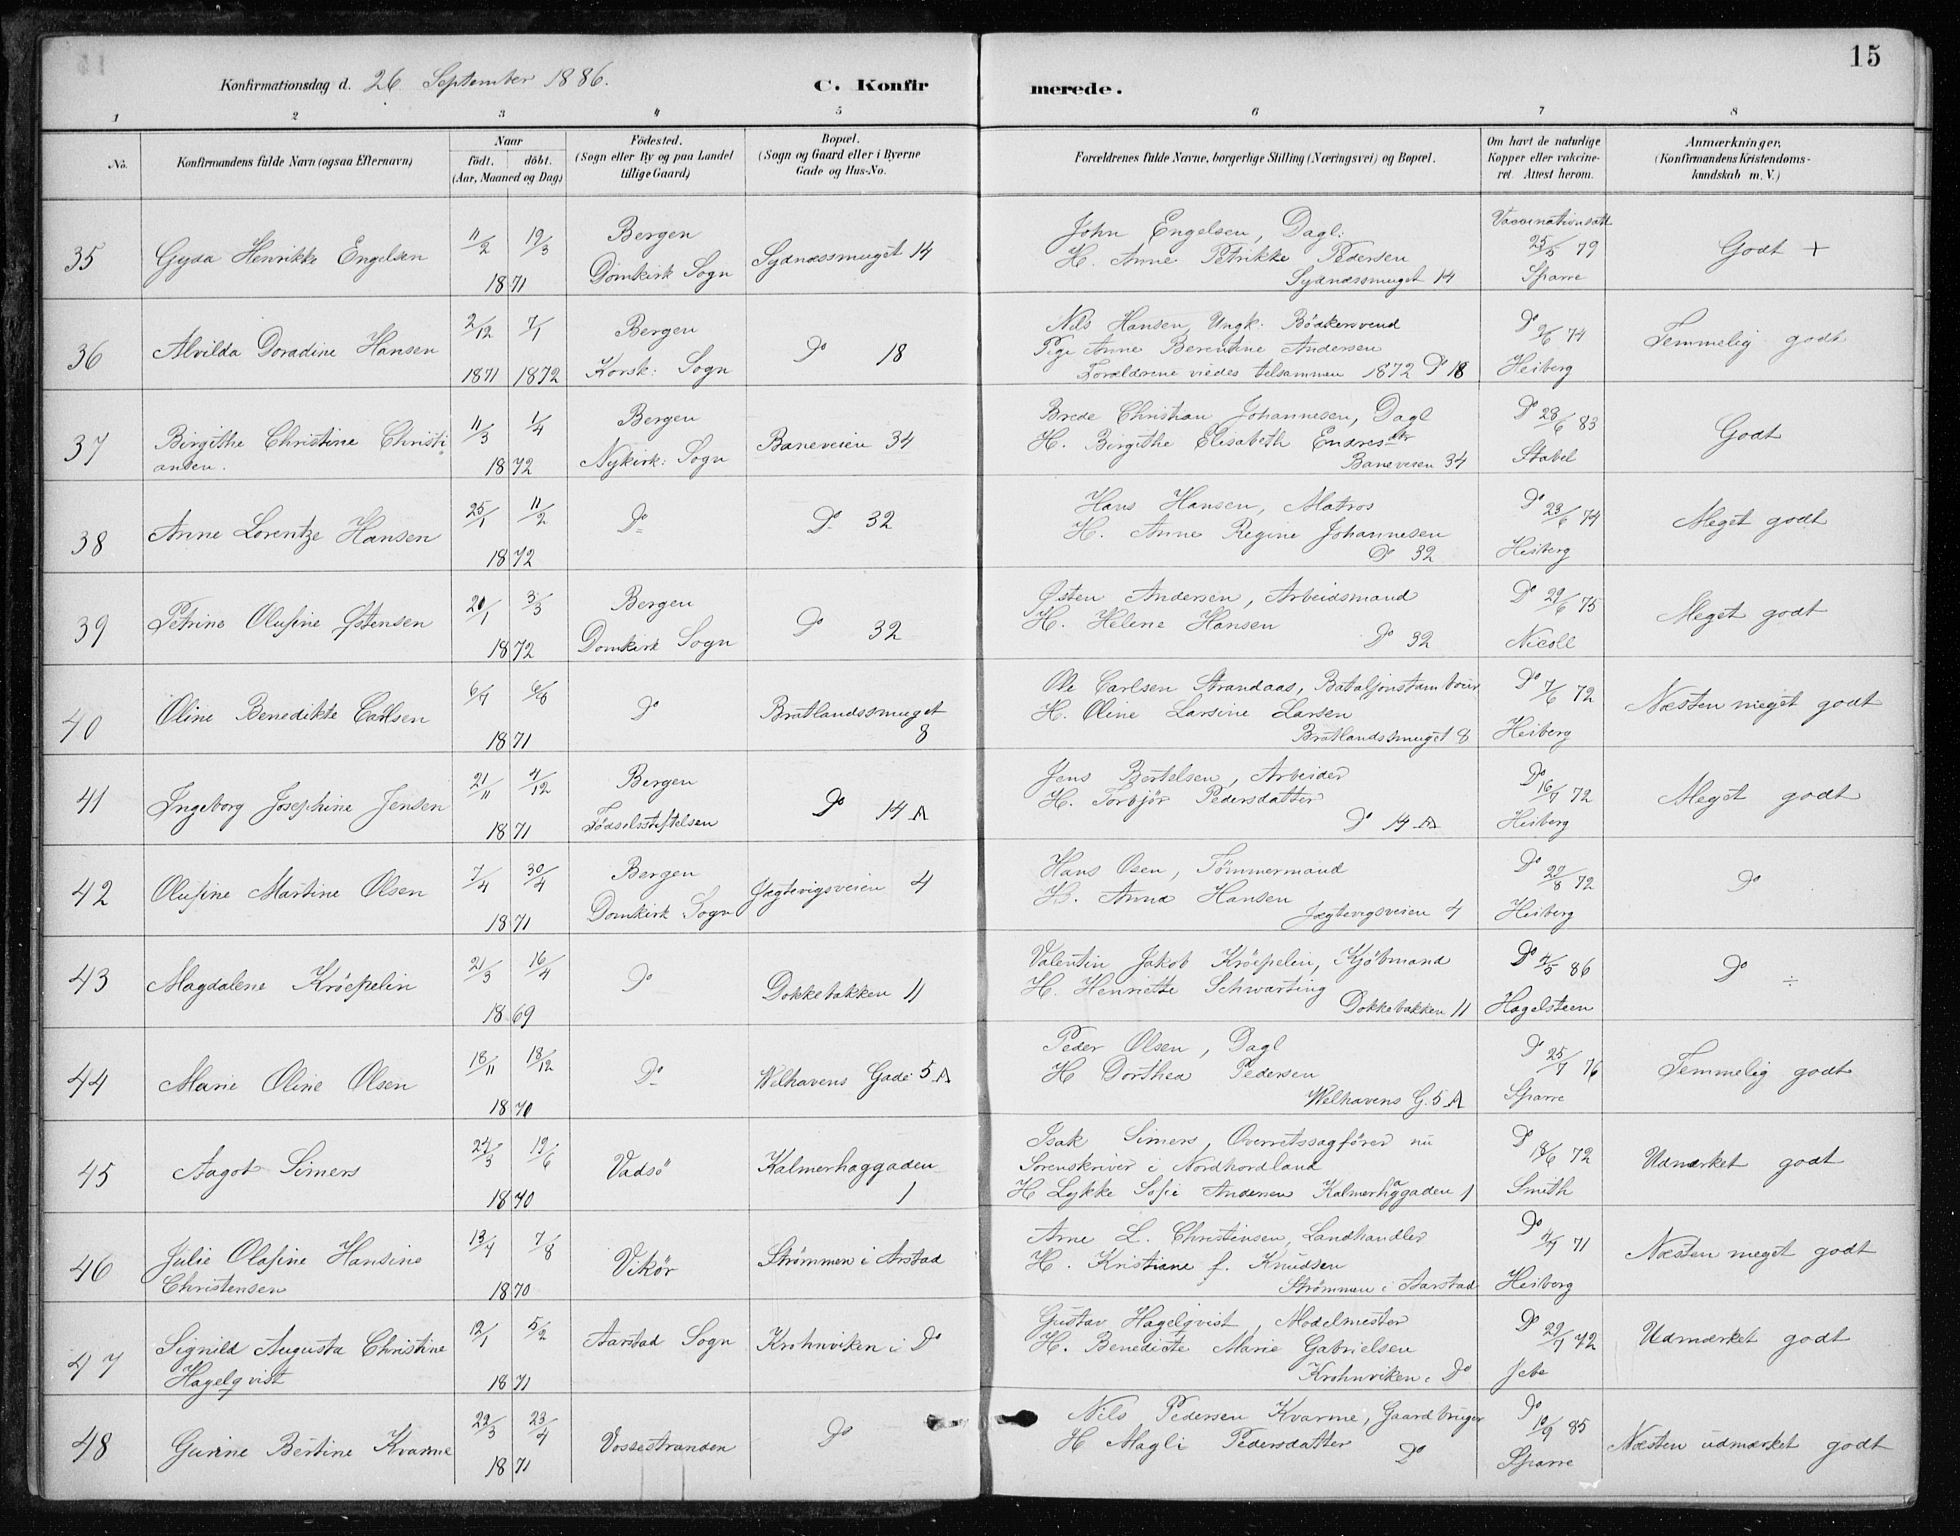 15
Konfirmationsdag d. 26 September 1886.
C. Konfirmerede.
1 2 3 4 5 6 7 8
No.
Konfirmandens fulde Navn (ogsaa Efternavn)
Naar
født. døbt.
(Aar, Maaned og Dag)
Fødested.
(Sogn eller By og paa Landet
tillige Gaard)
Bopæl.
(Sogn og Gaard eller i Byerne
Gade og Hus-No.
Forældrenes fulde Navne, borgerlige Stilling (Næringsvei) og Bopæl.
Om havt de naturlige
Kopper eller vakcine-
ret. Attest herom.
Anmærkninger.
(Konfirmandens Kristendoms-
kundskab m. V.)
35 Gyda Henrikke Engelsen 11/2 19/3 1871
Bergen
Domkirk Sogn
Sydnæssmuget 14
John Engelsen, Dagl:
H. Anne Petrikke Pedersen
Sydnæssmuget 14
Vaccinationsatt
25/5 79
Sparre
Godt +
36 Alvilda Doradine Hansen 2/12 1871 7/1 1872
Bergen
Korsk: Sogn
Do 18
Nils Hansen, Ungk: Bödkersvend
Pige Anne Berentine Andersen
Forældrene viedes tilsammen 1872 Do 18
Do 2/6 74
Heiberg
Temmelig godt
37 Birgithe Christine Christi
ansen. 11/3 1/4 1872
Bergen
Nykirk: Sogn
Baneveien 34
Brede Christian Johannesen, Dagl
H. Birgithe Elisabeth Endresdtr
Baneveien 34
Do 28/6 83
Stabel
Godt
38 Anne Lorentze Hansen 25/1 11/2 1872
Do
Do 32
Hans Hansen, Matros
H. Anne Regine Johannesen
Do 32
Do 23/6 74
Heiberg
Meget godt
39 Petrine Olufine Østensen 20/1 3/3 1872
Bergen
Domkirk Sogn
Do 32
Østen Andersen, Arbeidsmand
H. Helene Hansen
Do 32
Do 29/6 75
Nicoll
Meget godt
40 Oline Benedikte Carlsen 6/7 6/8 1871
Do
Bratlandssmuget
8
Ole Carlsen Strandaas, Bataljonstambour
H. Oline Larsine Larsen
Bratlandssmuget 8
Do 7/6 72
Heiberg
Næsten meget godt
41 Ingeborg Josephine Jensen 21/11 4/12 1871
Bergen
Fødselsstiftelsen
Do 14 A
Jens Bertelsen, Arbeider
H. Torbjör Pedersdatter
Do 14 A
Do 16/7 72
Heiberg
Meget godt
42 Olufine Martine Olsen 7/4 30/4 1871
Bergen
Domkirk Sogn
Jægtevigsveien 4
Hans Osen, Tömmermand
H. Anna Hansen
Jægtevigsveien 4
Do 27/8 72
Heiberg
Do
43 Magdalene Kröepelin 21/3 16/4 1869
Do
Dokkebakken 11
Valentin Jakob Kröepelin, Kjöbmand
H. Henriette Schwarting
Dokkebakken 11
Do 4/5 86
Hagelsteen
Do ÷
44 Marie Oline Olsen 18/11 18/12 1870
Do
Welhavens Gade 5 A
Peder Olsen, Dagl
H Dorthea Pedersen
Welhavens G. 5 A
Do 25/7 76
Sparre
Temmelig godt
45 Aagot Simers 24/3 19/6 1870
Vadsö
Kalmerhaggaden
1
Isak Simers, Overretssagförer nu
Sorenskriver i Nordhordland
H Lykke Sofie Andersen Kalmerhaggaden 1
Do 18/6 72
Smith
Udmærket godt
46 Julie Olafine Hansine
Christensen 13/7 7/8 1870
Vikör
Strømmen i Arstad
Arne L. Christensen, Landhandler
H. Kristiane f. Knudsen
Strømmen i Aarstad
Do 4/7 71
Heiberg
Næsten meget godt
47 Signild Augusta Christine
Hagelqvist 12/1 5/2 1871
Aarstad Sogn
Krohnviken i Do
Gustav Hagelqvist, Modelmester
H. Benedicte Marie Gabrielsen
Krohnviken i Do
Do 29/7 72
Jebe
Udmærket godt
48 Gurine Bertine Kvarme 22/3 23/4 1871
Vossestranden
Do
Nils Pedersen Kvarme, Gaardbruger
H Magli Pedersdatter
Do
Do 10/9 85
Sparre
Næsten udmærket godt